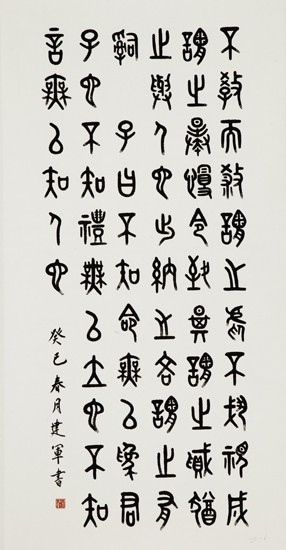 不教而殺謂之虐不戒視成
謂之暴慢令致期謂之賊猶
之與人也出納之吝謂之有
司 子曰不知命無以為君
子也不知禮無以立也不知
言無以知人也
癸巳春月建軍書